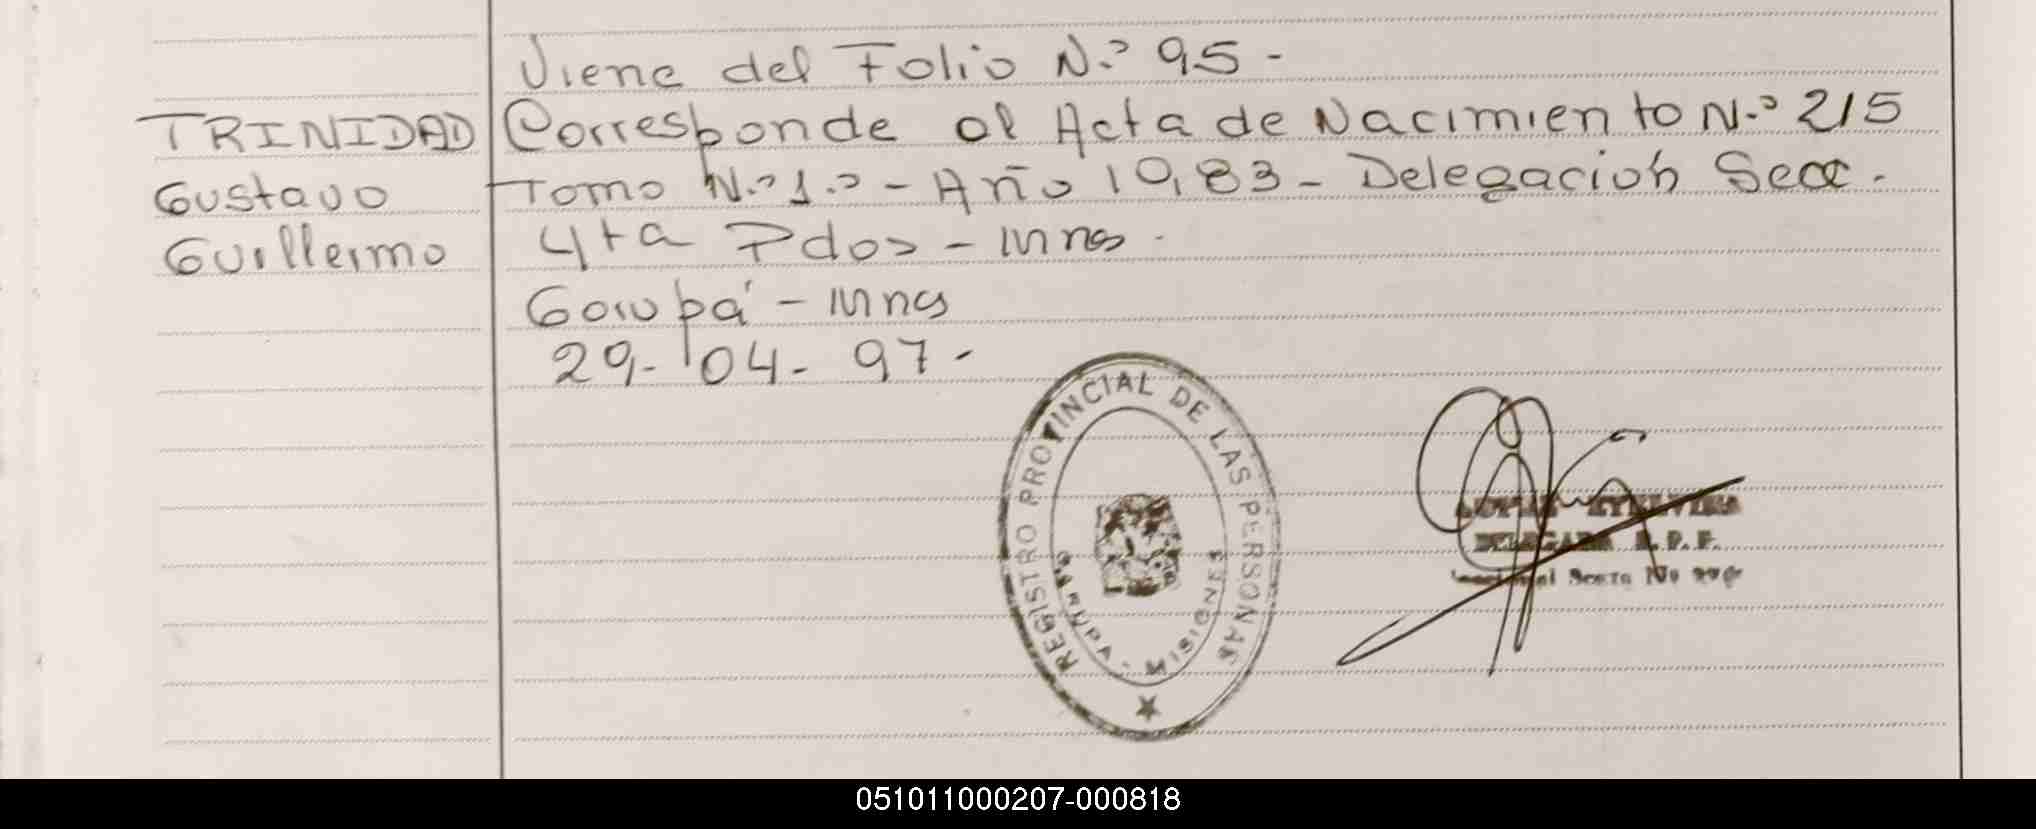 Viene del Folio N.º 95 -
TRINIDAD Corresponde al Acta de Nacimiento N.º 215
Gustavo Tomo N.º 1.º - Año 1983 - Delegación Secc.
Guillermo 4ta Pdas - Mnes.
Garupá - Mnes
29- 04- 97-
REGISTRO PROVINCIAL DE LAS PERSONAS
GARUPA - MISIONES
ETELVINA
DELEGADA R. P. P.
051011000207-000818